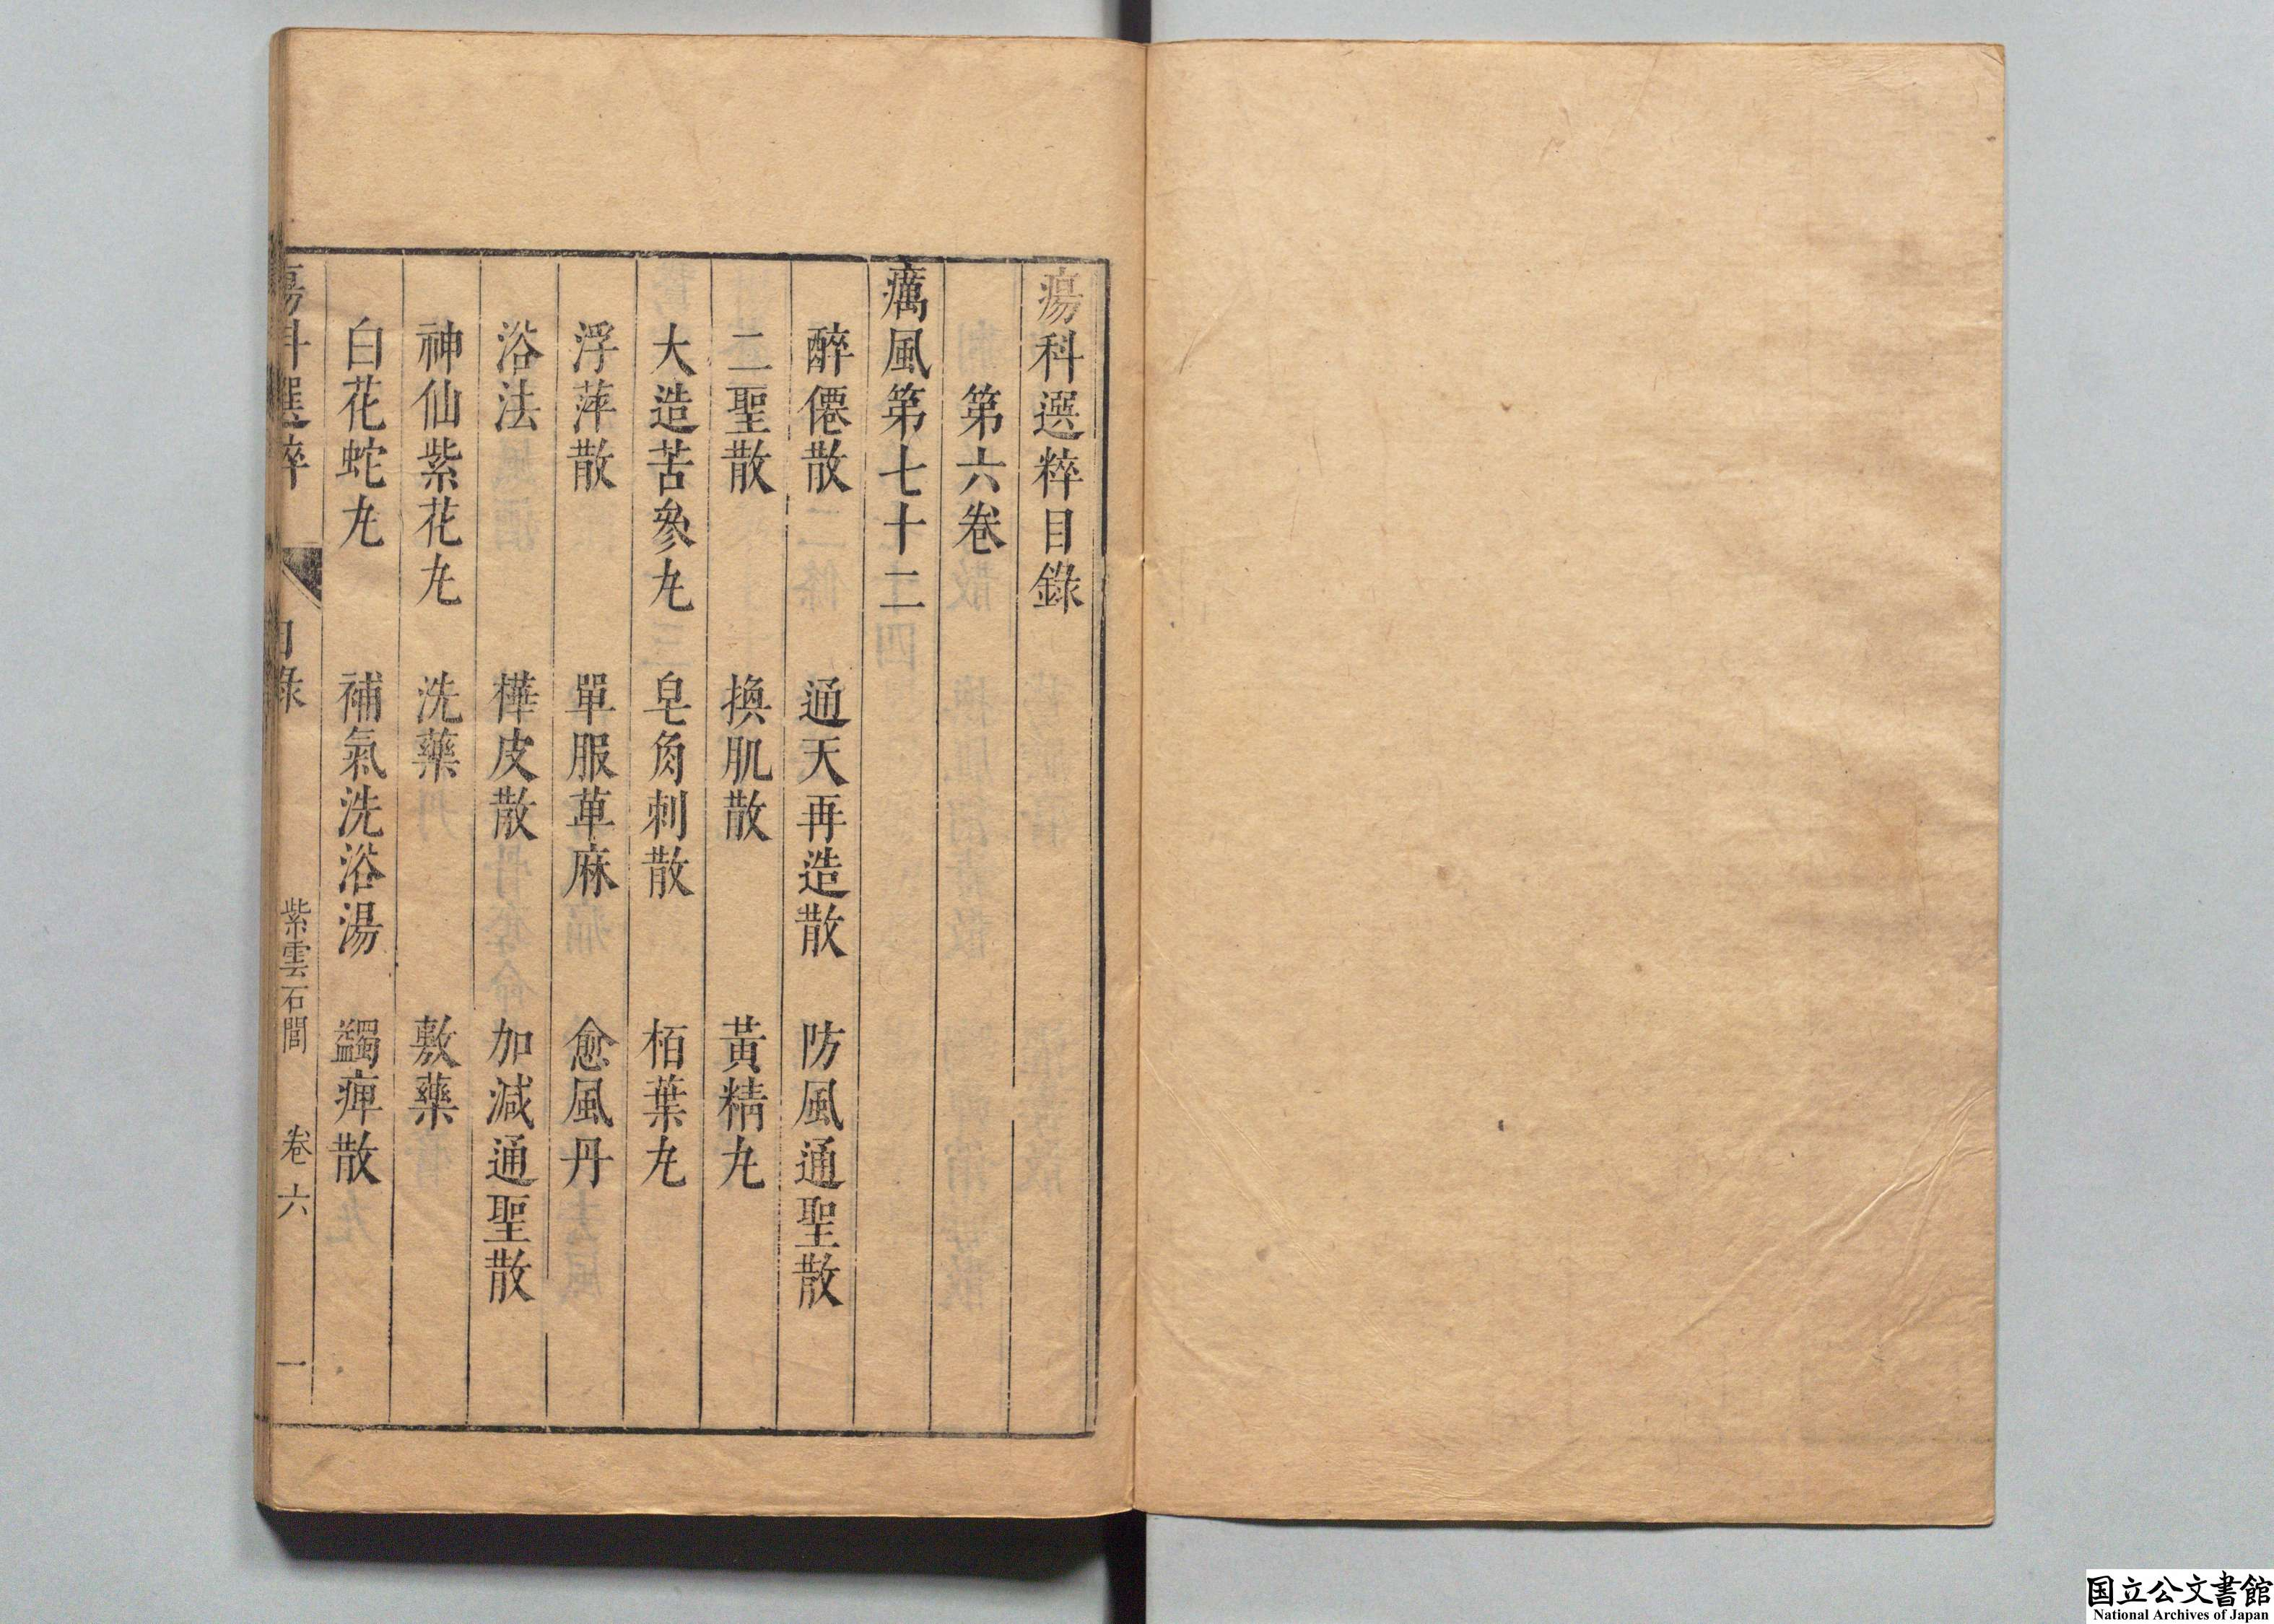 瘍科選粹目錄
第六卷
癘風第七十二
醉僊散 通天再造散 防風通聖散
二聖散 換肌散 黃精丸
大造苦參丸 皂角刺散 栢葉丸
浮萍散 單服萆麻 愈風丹
浴法 樺皮散 加減通聖散
神仙紫花丸 洗藥 敷藥
白花蛇丸 補氣洗浴湯 蠲痺散
瘍科選粹 目錄 紫雲石閭 卷六 一
国立公文書館
National Archives of Japan